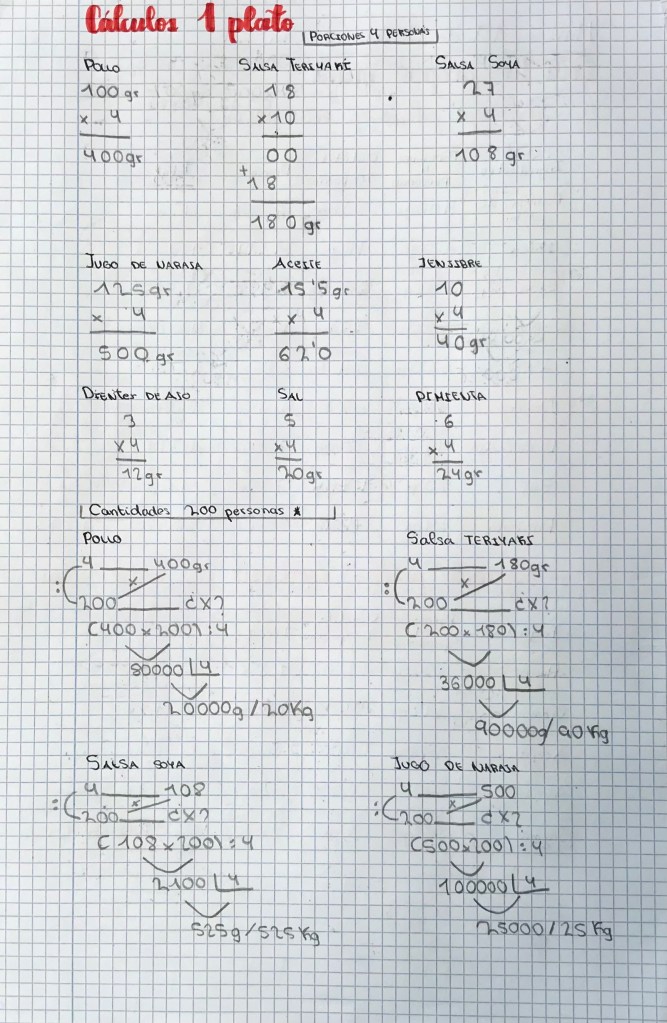 Cálculos 1 plato
PORCIONES 4 PERSONAS
POLLO
100gr
x 4
400gr
SALSA TERIYAKI
18
x10
00
+18
180gr
SALSA SOYA
27
x 4
108 gr
JUGO DE NARAJA
125gr
x 4
500 gr
ACEITE
15'5gr
x 4
62'0
JENJIBRE
10
x 4
40gr
Dienter DE AJO
3
x4
12gr
SAL
5
x4
20gr
PIMIENTA
6
x 4
24gr
Cantidades 200 personas *
POLLO
4 400gr
: x
200 ¿x?
(400x200):4
80000 4
20000g/20Kg
Salsa TERIYAKI
4 180gr
: x
200 ¿x?
(200x180):4
36000 4
90000g/90Kg
SALSA SOYA
4 108
: x
200 ¿x?
(108x200):4
2100 4
525g/525Kg
JUGO DE NARAJA
4 500
: x
200 ¿x?
(500x200):4
100000 4
25000/25Kg